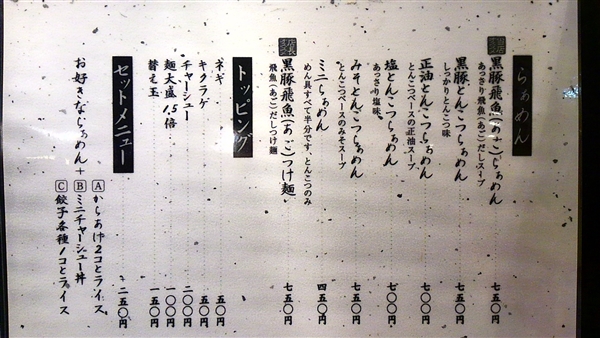 らぁめん
黒豚飛魚(あご)らぁめん 七五〇円
あっさり飛魚(あご)だしスープ
黒豚とんこつらぁめん 七五〇円
しっかりとんこつ味
正油とんこつらぁめん 七〇〇円
とんこつベースの正油スープ
塩とんこつらぁめん 七〇〇円
あっさり塩味
みそとんこつらぁめん 七五〇円
とんこつベースのみそスープ
ミニらぁめん 四五〇円
めん具すべて半分です、とんこつのみ
黒豚飛魚(あご)つけ麺 七五〇円
飛魚(あご)だしつけ麺
トッピング
ネギ 五〇円
キクラゲ 五〇円
チャーシュー 二〇〇円
麺大盛1.5倍 一〇〇円
替え玉 一五〇円
セットメニュー 二五〇円
お好きならぁめん+
Aからあげ2コとライス
Bミニチャーシュー丼
C餃子各種1コとライス